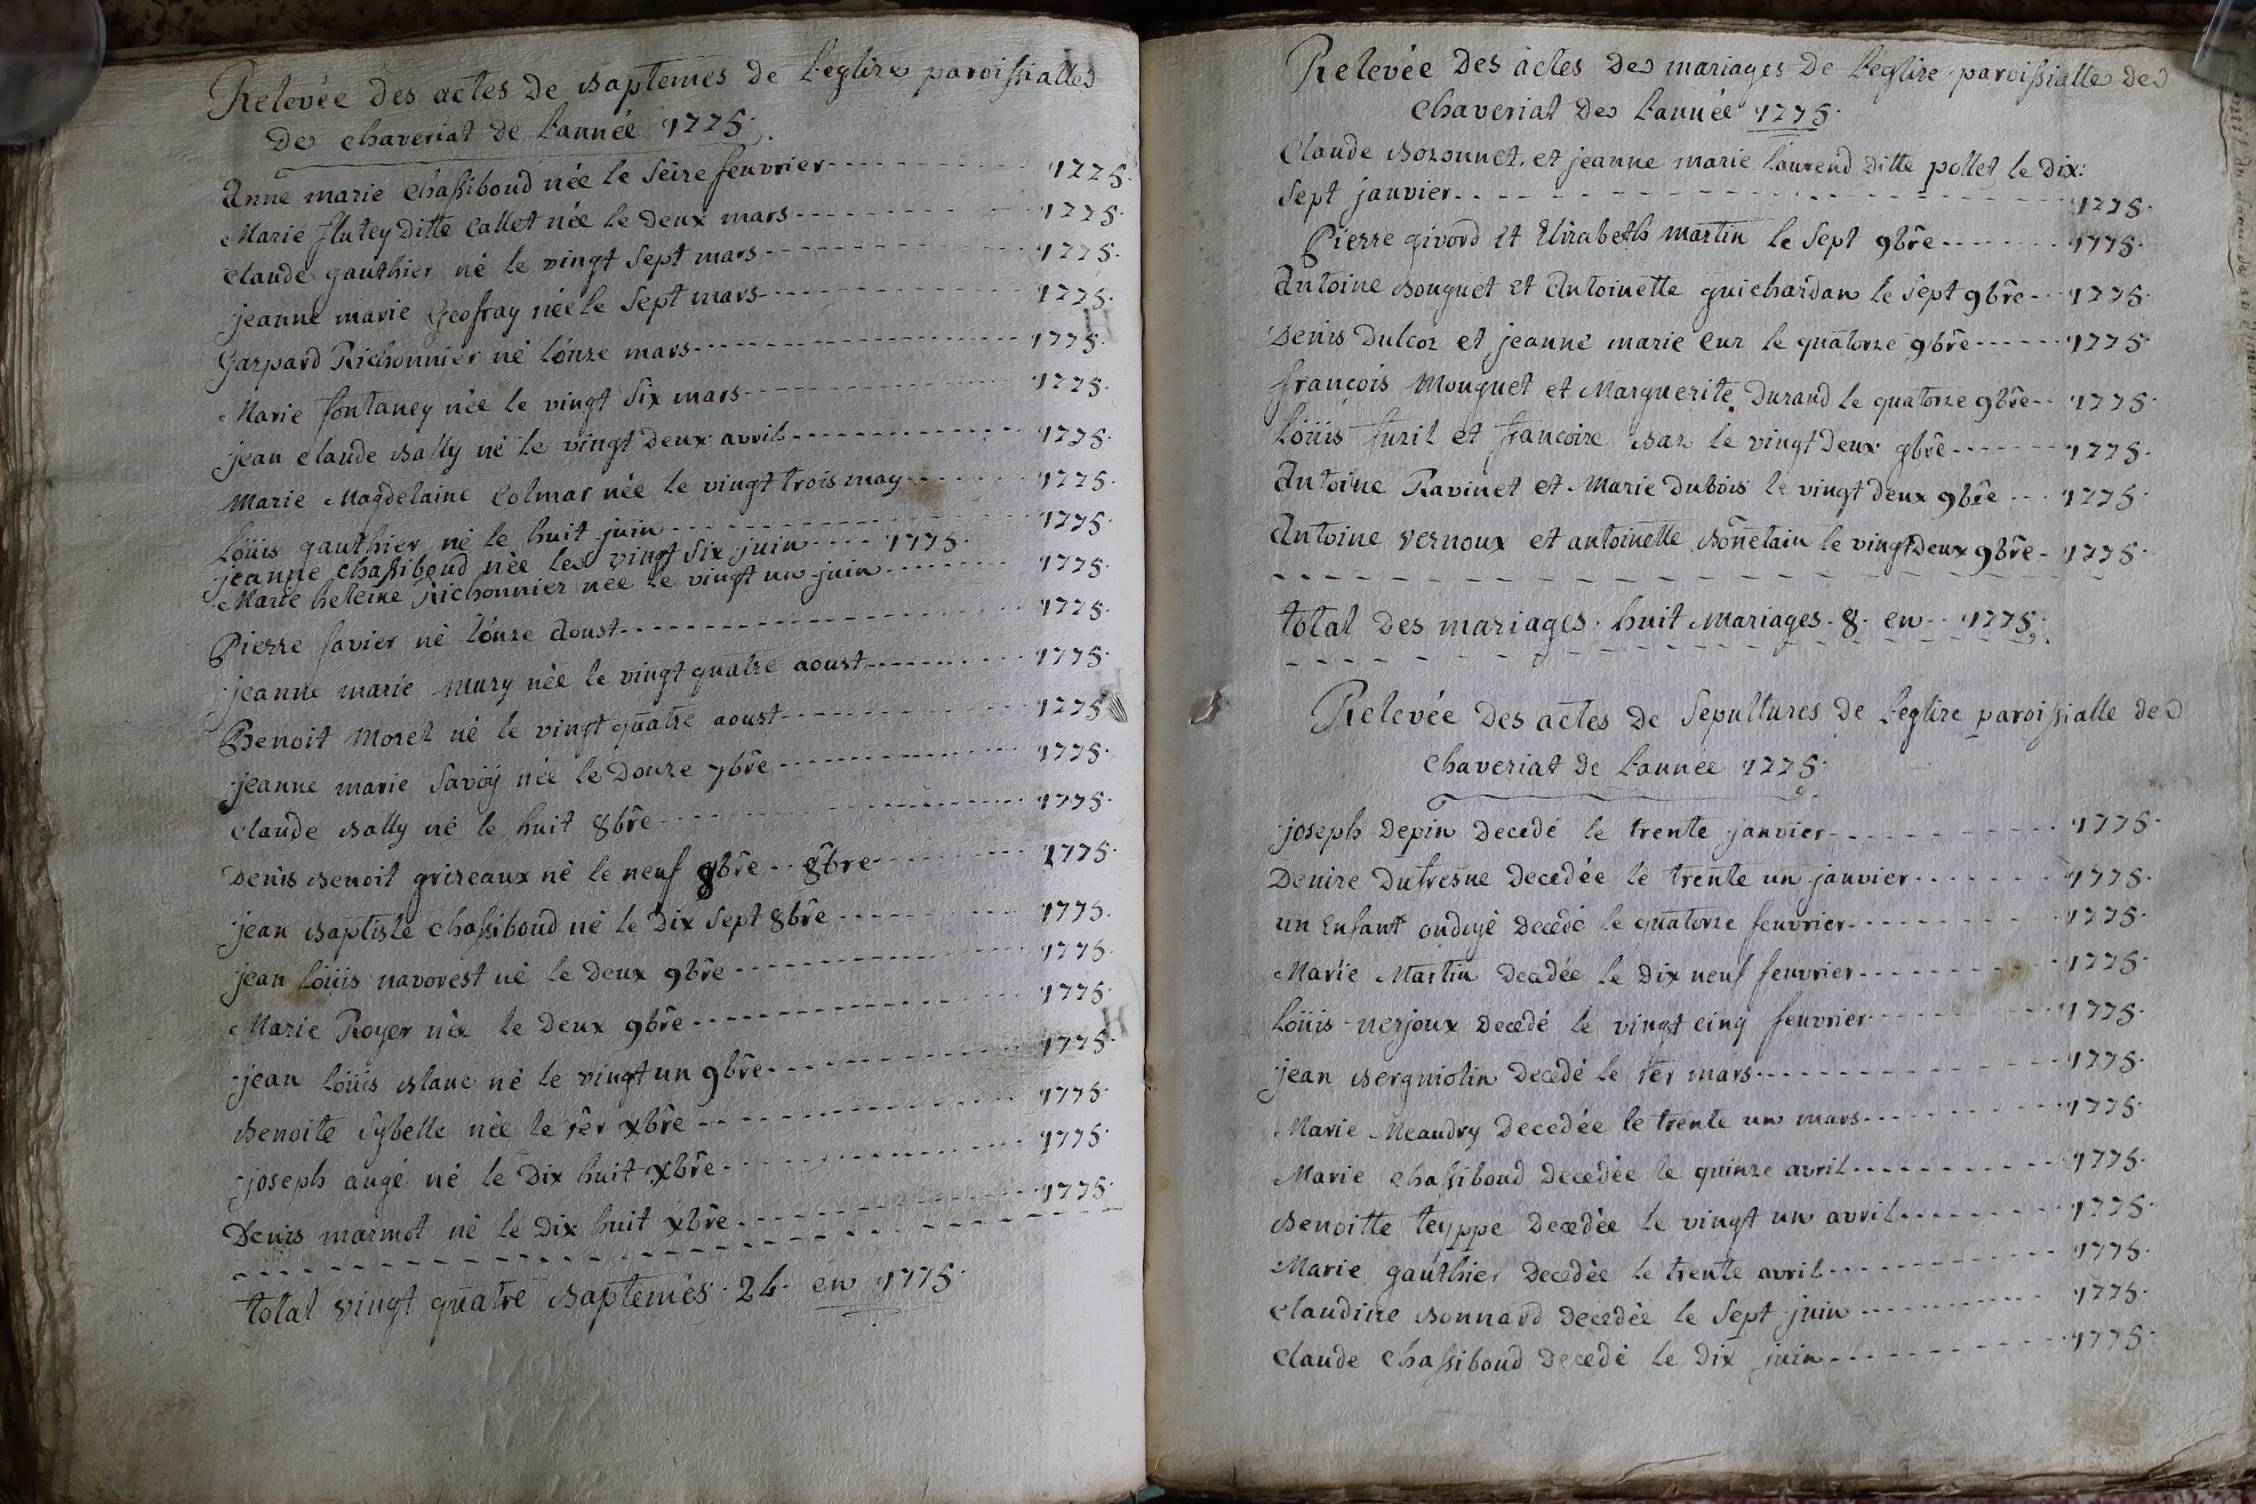 Relevée des actes de Baptemes de L'eglize paroissialle
de chaveriat de L'année 1775.
Anne marie Chassiboud née le Seize feuvrier 1775.
Marie flutey ditte Callet née le deux mars 1775.
Claude gauthier né le vingt Sept mars 1775.
jeanne marie Geofray née le Sept mars 1775.
Gaspard Richonnier né L'onze mars 1775.
Marie fontaney née le vingt Six mars 1775.
jean claude Bally né le vingt deux avril 1775.
Marie Magdelaine Colmar née le vingt trois may 1775.
Loüis gauthier né le huit juin 1775.
jeanne Chassiboud née le vingt Six juin 1775.
Marie heleine Richonnier née le vingt un juin 1775.
Pierre favier né L'onze Aoust 1775.
jeanne marie Mury née le vingt quatre aoust 1775.
Benoit Morel né le vingt quatre aoust 1775
jeanne marie Savoÿ née le Douze 7bre 1775.
Claude Bally né le huit 8bre 1775.
Denis Benoit grizeaux né le neuf 8bre 8bre 1775.
jean Baptiste Chassiboud né le Dix Sept 8bre 1775.
jean Loüis navorest né le Deux 9bre 1775.
Marie Royer née le Deux 9bre 1775.
jean Loüis Blanc né le vingt un 9bre 1775.
Benoite Sybelle née le 1er xbre 1775.
joseph augé né le Dix huit xbre 1775.
Denis marmot né le Dix huit xbre 1775.
total vingt quatre Baptemes. 24. en 1775.
Relevée des actes de mariages de L'eglize paroissialle de
Chaveriat de L'année 1775.
Claude Bozonnet, et jeanne marie Laurend ditte pollet le dix:
Sept janvier 1775.
Pierre givord et Elizabeth Martin le Sept 9bre 1775.
Antoine Bouguet et Antoinette guichardan le Sept 9bre 1775.
Denis Dulcoz et jeanne marie Cuz le quatorze 9bre 1775.
françois Mouguet et Marguerite Durand le quatorze 9bre 1775.
Loüis fuzil et francoize Baz le vingt Deux 9bre 1775.
Antoine Ravinet et Marie Dubois le vingt deux 9bre 1775.
Antoine vernoux et antoinette Bonnetain le vingt Deux 9bre 1775.
total Des mariages. huit Mariages. 8. en 1775.
Relevée Des actes De Sepultures De L'eglize paroissialle de
Chaveriat de L'année 1775.
joseph Depin Decedé le trente janvier 1775.
Denize Dufresne Decedée le trente un janvier 1775.
un Enfant ondoyé Decedé le quatorze feuvrier 1775.
Marie Martin Decedée le Dix neuf feuvrier 1775.
Loüis nerjoux Decedé le vingt cinq feuvrier 1775.
jean Bergniolin Decedé le 1er mars 1775.
Marie Meaudry Decedée le trente un mars 1775.
Marie Chassiboud Decedée le quinze avril 1775.
Benoitte teyppe Decedée le vingt un avril 1775.
Marie gauthier Decedée le trente avril 1775.
Claudine Bonnard Decedée le Sept juin 1775.
Claude Chassiboud Decedé le Dix juin 1775.